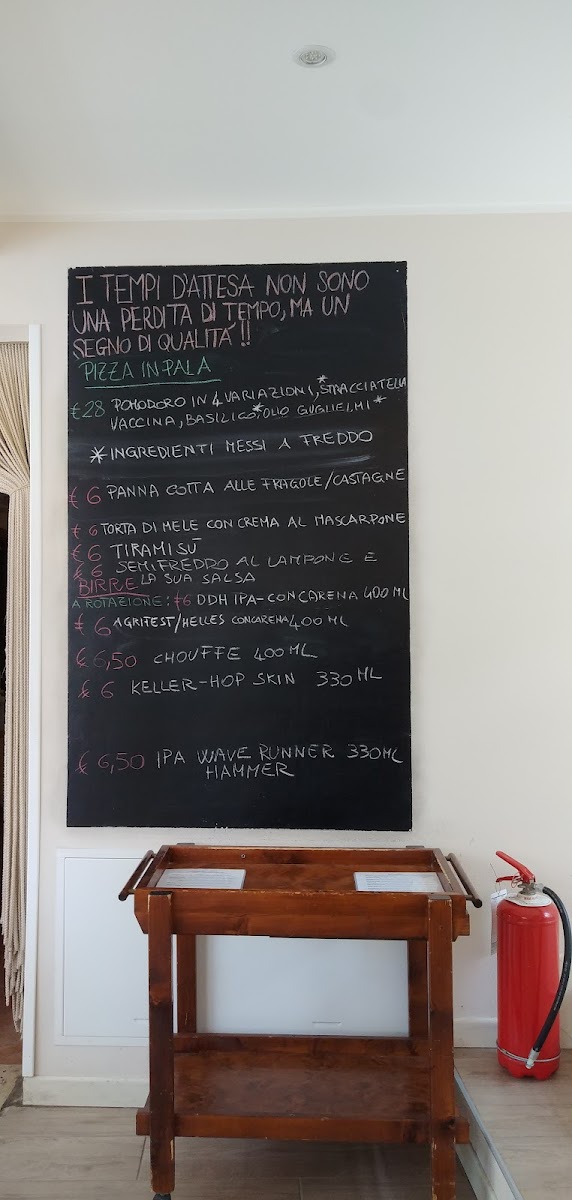 I TEMPI D'ATTESA NON SONO
UNA PERDITA DI TEMPO, MA UN
SEGNO DI QUALITÁ!!
PIZZA IN PALA
€28 POMODORO IN 4 VARIAZIONI, *STRACCIATELLA
VACCINA, BASILICO*, OLIO GUGLIELMI *
* INGREDIENTI MESSI A FREDDO
€ 6 PANNA COTTA ALLE FRAGOLE/CASTAGNE
€ 6 TORTA DI MELE CON CREMA AL MASCARPONE
€ 6 TIRAMISÙ
€ 6 SEMIFREDDO AL LAMPONE E
LA SUA SALSA
BIRRE
A ROTAZIONE: €6 DDH IPA-CONCARENA 400 ML
€ 6 AGRIFEST/HELLES CONCARENA 400 ML
€ 6,50 CHOUFFE 400 ML
€ 6 KELLER-HOP SKIN 330 ML
€ 6,50 IPA WAVE RUNNER 330 ML
HAMMER